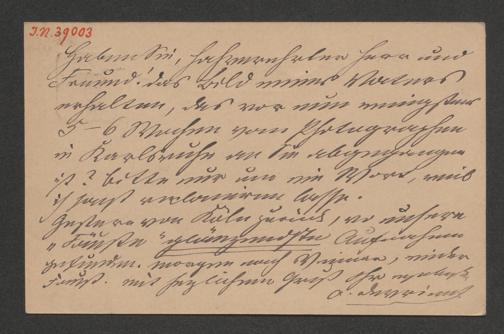 I.N. 39003
Haben Sie, hochverehrter Herr und
Freund! das Bild meines Vaters
erhalten, das vor nun wenigstens
5-6 Wochen vom Photographen
in Karlsruhe an Sie abgegangen
ist? Bitte nur um ein Wort, weil
ich sonst reclamiren lasse.
Gestern von Köln zurück, wo unsere
"Fäuste" glänzendste Aufnahme
gefunden. Morgen nach Weimar, wieder
Faust. Mit herzlichem Gruß Ihr
O. Devrient